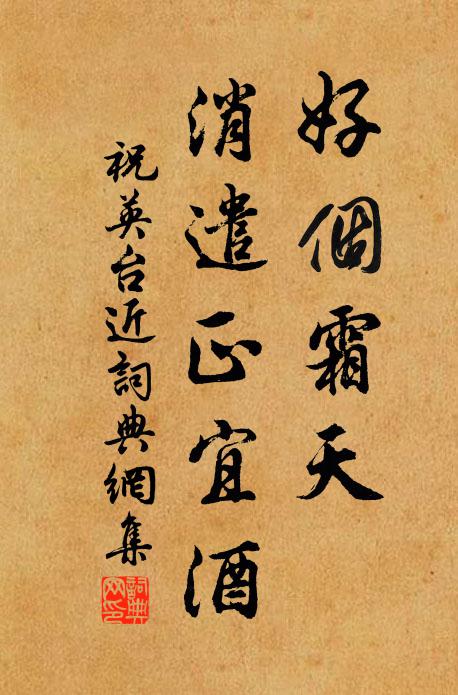 好個霜天
消遣正宜酒
祝英台近詞典網集
詞典網印